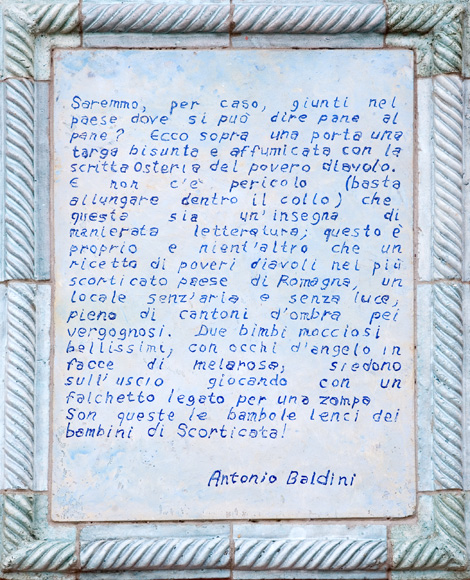 Saremmo, per caso, giunti nel
paese dove si può dire pane al
pane? Ecco sopra una porta una
targa bisunta e affumicata con la
scritta Osteria del povero diavolo.
E non c'è pericolo (basta
allungare dentro il collo) che
questa sia un'insegna di
manierata letteratura; questo è
proprio e nient'altro che un
ricetto di poveri diavoli nel più
scorticato paese di Romagna, un
locale senz'aria e senza luce,
pieno di cantoni d'ombra pei
vergognosi. Due bimbi mocciosi
bellissimi, con occhi d'angelo in
facce di melarosa, siedono
sull'uscio giocando con un
falchetto legato per una zampa
Son queste le bambole lenci dei
bambini di Scorticata!
Antonio Baldini